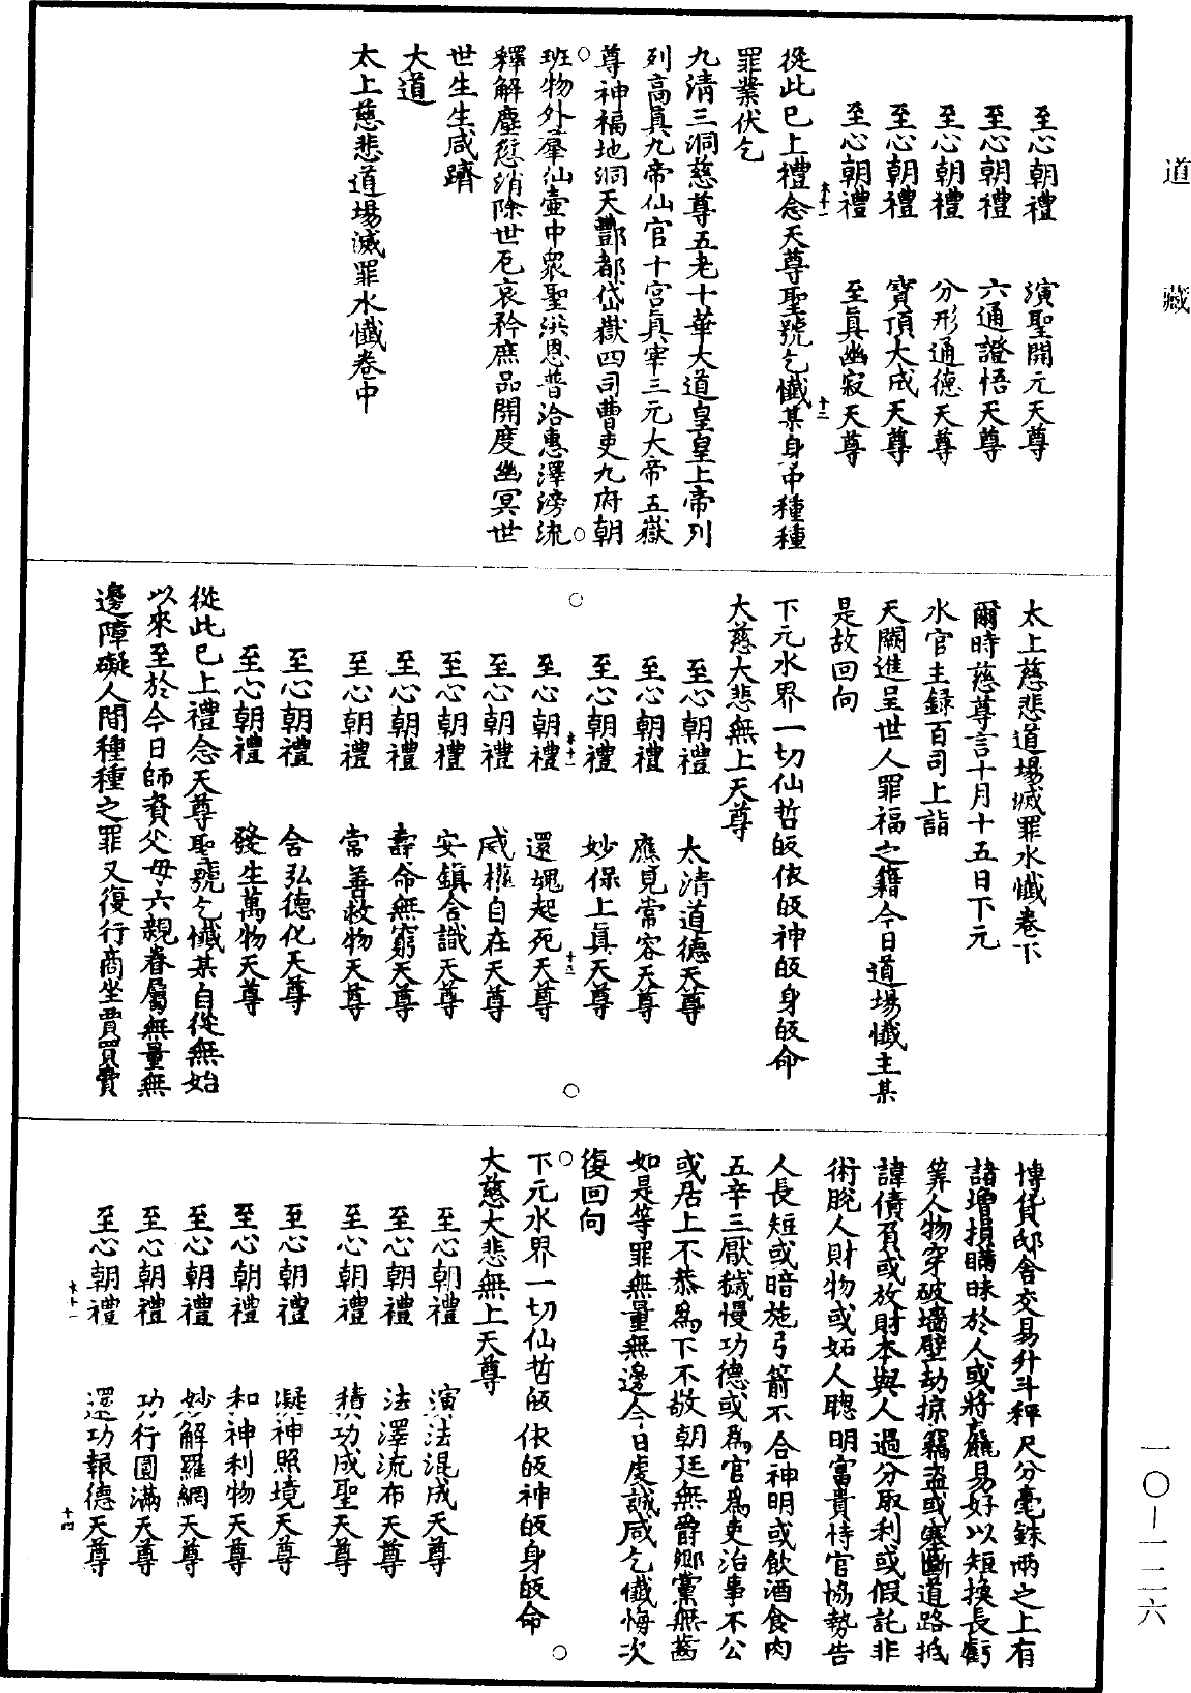 道藏
至心朝禮　演聖開元天尊
至心朝禮　六通證悟天尊
至心朝禮　分形通德天尊
至心朝禮　寳頂大成天尊
至心朝禮　至眞幽寂天尊
從此已上禮念天尊聖號乞懺某身中種種
罪業伏乞
九清三洞慈尊五老十華大道皇皇上帝列
列高眞九帝仙官十宮眞宰三元大帝五嶽
尊神福地洞天酆都岱嶽四司曹吏九府朝
班物外羣仙壺中衆聖洪恩普洽惠澤滂流
釋解塵愆消除世厄哀矜庶品開度幽冥世
世生生咸躋
大道
太上慈悲道場滅罪水懺卷中
太上慈悲道場滅罪水懺卷下
爾時慈尊言十月十五日下元
水官主録百司上詣
天闕進呈世人罪福之籍今日道場懺主某
是故回向
下元水界一切仙哲皈依皈神皈身皈命
大慈大悲無上天尊
至心朝禮　太清道德天尊
至心朝禮　應見常容天尊
至心朝禮　妙保上眞天尊
至心朝禮　還魂起死天尊
至心朝禮　威權自在天尊
至心朝禮　安鎮含識天尊
至心朝禮　壽命無窮天尊
至心朝禮　常善救物天尊
至心朝禮　含弘德化天尊
至心朝禮　發生萬物天尊
從此已上禮念天尊聖號乞懺某自從無始
以來至於今日師資父母六親眷屬無量無
邊障礙人間種種之罪又復行商坐賈買賣
博貨邸舍交易升斗秤尺分毫銖兩之上有
諸增損瞞昧於人或將麄易好以短換長虧
筭人物穿破墻壁劫掠竊盜或塞斷道路抵
諱債負或放財本與人過分取利或假託非
術脫人財物或妬人聰明富貴恃官協勢告
人長短或暗施弓箭不合神明或飲酒食肉
五辛三厭穢慢功德或爲官爲吏治事不公
或居上不恭爲下不敬朝廷無爵鄉黨無齒
如是等罪無量無邊今日虔誠咸乞懺悔次
復回向
下元水界一切仙哲皈依皈神皈身皈命
大慈大悲無上天尊
至心朝禮　演法混成天尊
至心朝禮　法澤流布天尊
至心朝禮　積功成聖天尊
至心朝禮　凝神照境天尊
至心朝禮　和神利物天尊
至心朝禮　妙解羅網天尊
至心朝禮　功行圓滿天尊
至心朝禮　還功報德天尊
一〇—一二六